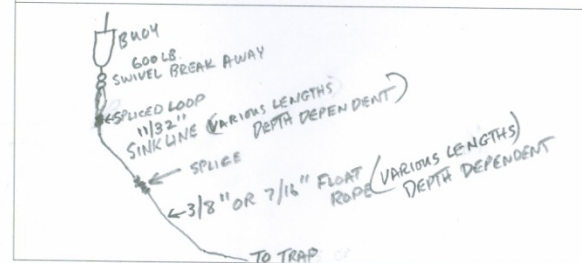 BUOY
600 LB.
SWIVEL BREAK AWAY
SPLICED LOOP
11/32"
SINK LINE (VARIOUS LENGTHS)
DEPTH DEPENDENT
SPLICE
3/8" OR 7/16" FLOAT
ROPE (VARIOUS LENGTHS)
DEPTH DEPENDENT
TO TRAP